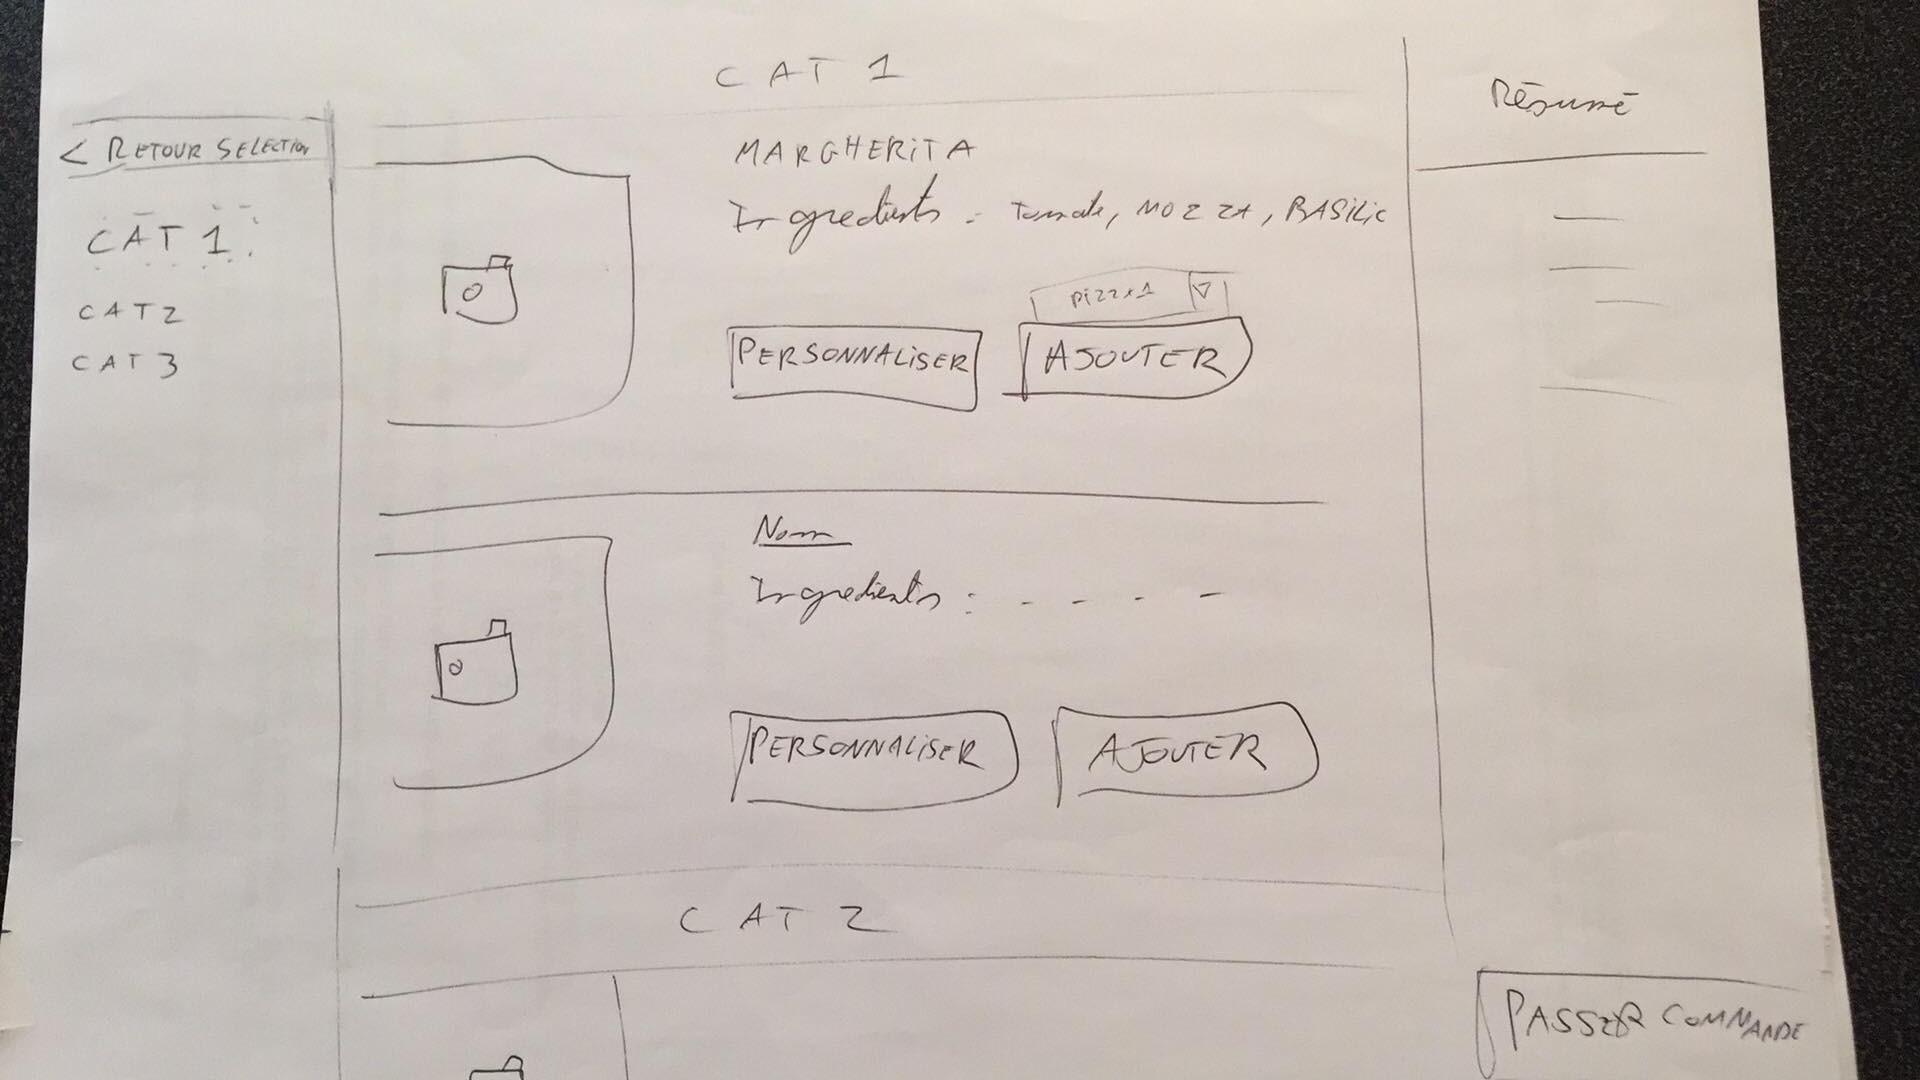 CAT 1
< RETOUR SELECTION
CAT 1
CAT 2
CAT 3
MARGHERITA
Ingredients : Tomate, MOZZA, BASILIC
pizza 1
PERSONNALISER
AJOUTER
Nom
Ingredients : - - - -
PERSONNALISER
AJOUTER
CAT 2
Résumé
PASSER COMMANDE